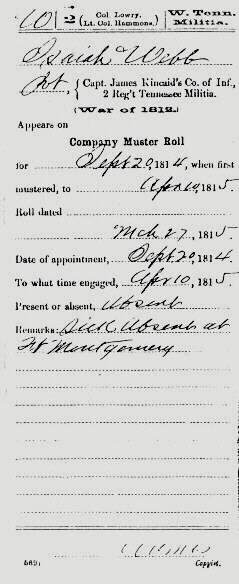 2 Col. Lowry. W. Tenn.
(Lt. Col. Hammons.) Militia.
Isaiah Webb
Pvt, { Capt. James Kincaid's Co. of Inf.,
2 Reg't Tennessee Militia.
(War of 1812.)
Appears on
Company Muster Roll
for Sept 20, 1814, when first
mustered, to Apr 10, 1815.
Roll dated
Mch 27, 1815.
Date of appointment, Sept. 20, 1814.
To what time engaged, Apr 10, 1815.
Present or absent, Absent
Remarks: Sick, Absent at
Ft Montgomery
Copyist.